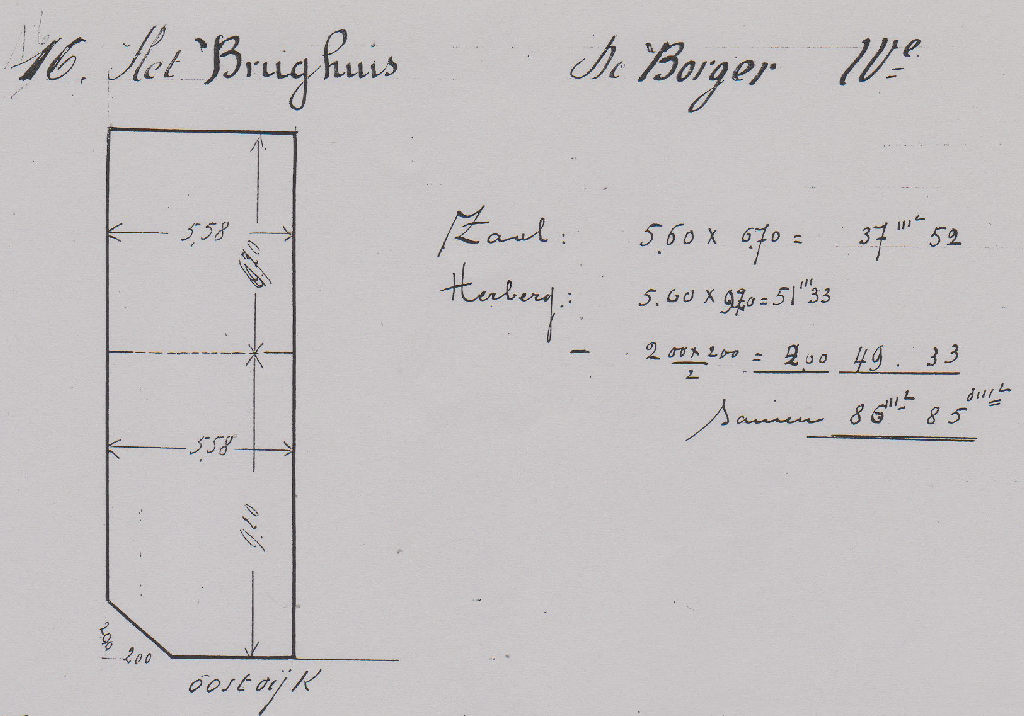 16. Het Brughuis
De Borger We
5,58
6,70
5,58
9,20
200
200
oostdijk
Zaal: 5.60 x 6.70 = 37 m2 52
Herberg: 5.60 x 9.20 = 51 m 33
- 200 x 200 / 2 = 2.00 49. 33
Samen 86 m2 85 dm2